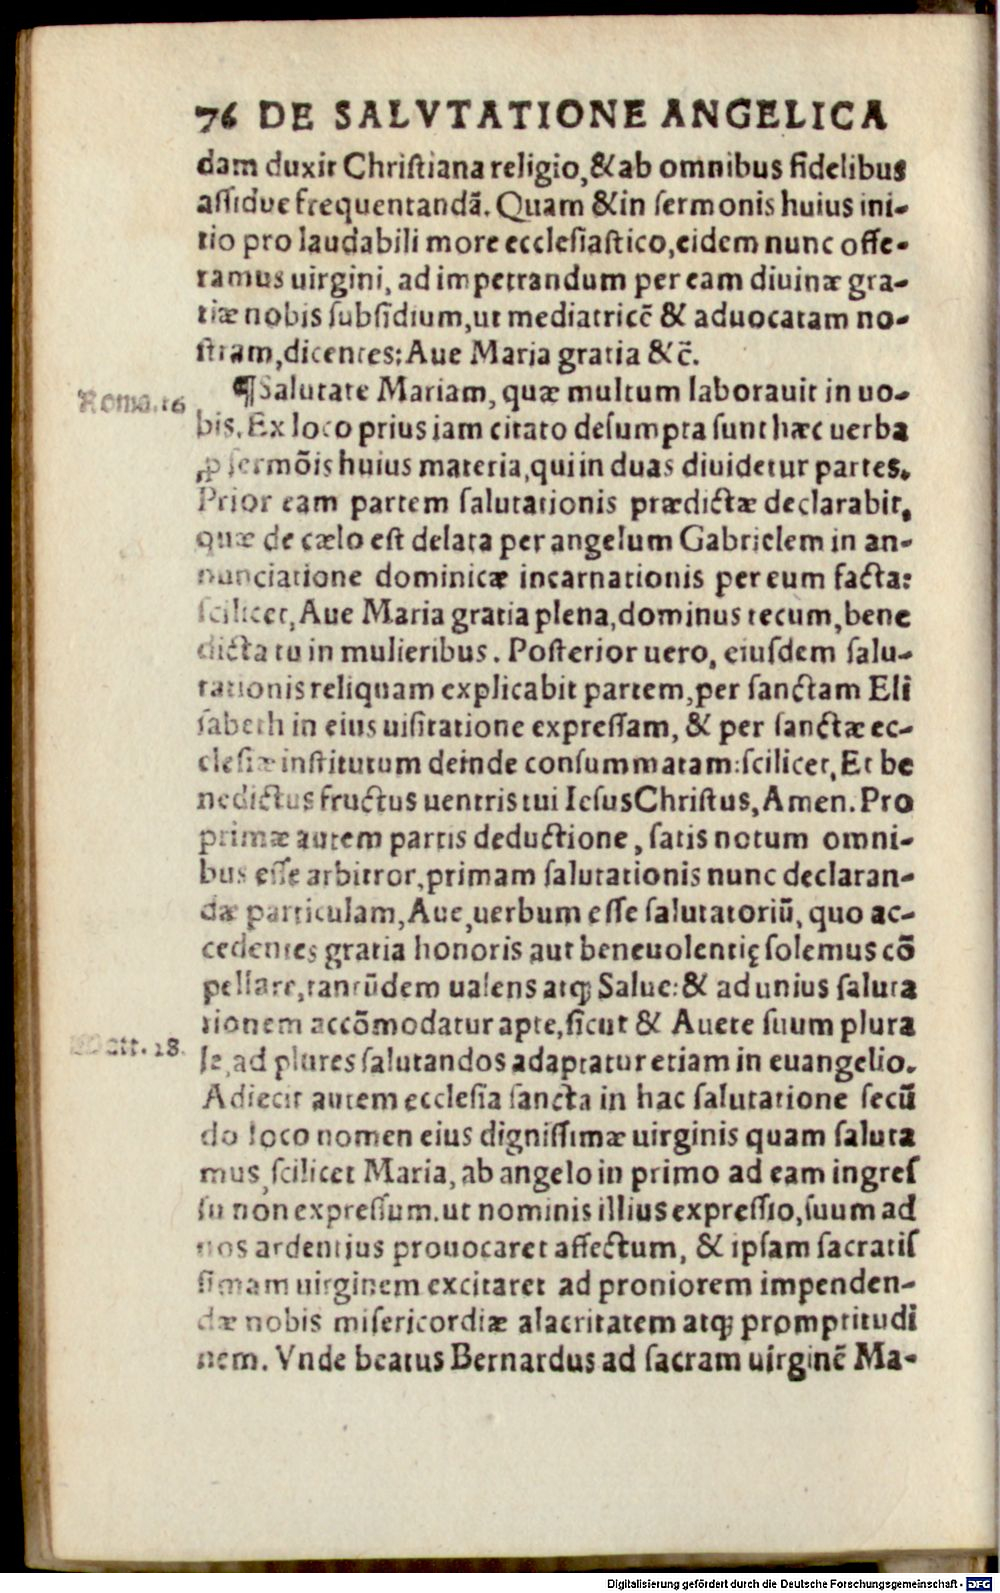 76 DE SALVTATIONE ANGELICA
dam duxit Chriſtiana religio, & ab omnibus fidelibus
aſſidue frequentandã. Quam & in ſermonis huius ini-
tio pro laudabili more eccleſiaſtico, eidem nunc offe-
ramus uirgini, ad impetrandum per eam diuinæ gra-
tiæ nobis ſubſidium, ut mediatricẽ & aduocatam no-
ſtram, dicentes: Aue Maria gratia &c̃.
Roma. 16
¶Salutate Mariam, quæ multum laborauit in uo-
bis. Ex loco prius iam citato deſumpta ſunt hæc uerba
ꝓ ſermõis huius materia, qui in duas diuidetur partes.
Prior eam partem ſalutationis prædictæ declarabit,
quæ de cælo eſt delata per angelum Gabrielem in an-
nunciatione dominicæ incarnationis per eum facta:
ſcilicet, Aue Maria gratia plena, dominus tecum, bene
dicta tu in mulieribus. Poſterior uero, eiuſdem ſalu-
tationis reliquam explicabit partem, per ſanctam Eli
ſabeth in eius uiſitatione expreſſam, & per ſanctæ ec-
cleſiæ inſtitutum deinde conſummatam: ſcilicet, Et be
nedictus fructus uentris tui Ieſus Chriſtus, Amen. Pro
primæ autem partis deductione, ſatis notum omni-
bus eſſe arbitror, primam ſalutationis nunc declaran-
dæ particulam, Aue, uerbum eſſe ſalutatoriũ, quo ac-
cedentes gratia honoris aut beneuolentię ſolemus cõ
pellare, tantũdem ualens atq; Salue: & ad unius ſaluta
tionem accõmodatur apte, ſicut & Auete ſuum plura
Matt. 28.
le, ad plures ſalutandos adaptatur etiam in euangelio.
Adiecit autem eccleſia ſancta in hac ſalutatione ſecũ
do loco nomen eius digniſſimæ uirginis quam ſaluta
mus, ſcilicet Maria, ab angelo in primo ad eam ingreſ
ſu non expreſſum. ut nominis illius expreſſio, ſuum ad
nos ardentius prouocaret affectum, & ipſam ſacratiſ
ſimam uirginem excitaret ad proniorem impenden-
dæ nobis miſericordiæ alacritatem atq; promptitudi
nem. Vnde beatus Bernardus ad ſacram uirginẽ Ma-
Digitalisierung gefördert durch die Deutsche Forschungsgemeinschaft - DFG